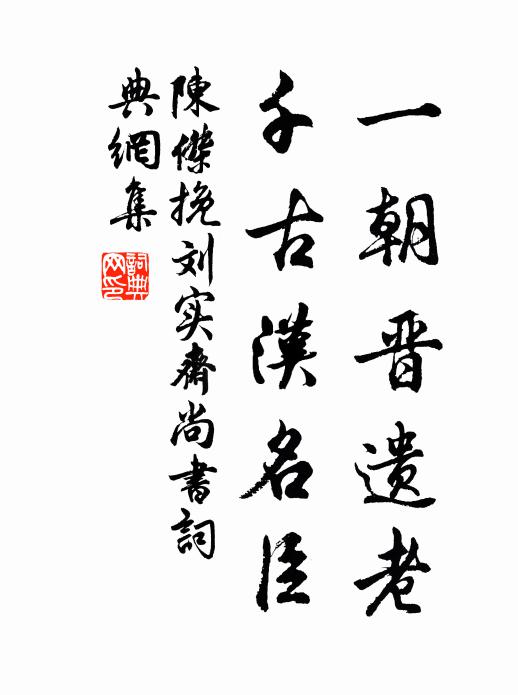 一朝晋遗老
千古漢名臣
陳傑挽刘实齋尚書詞
典網集
詞典网印